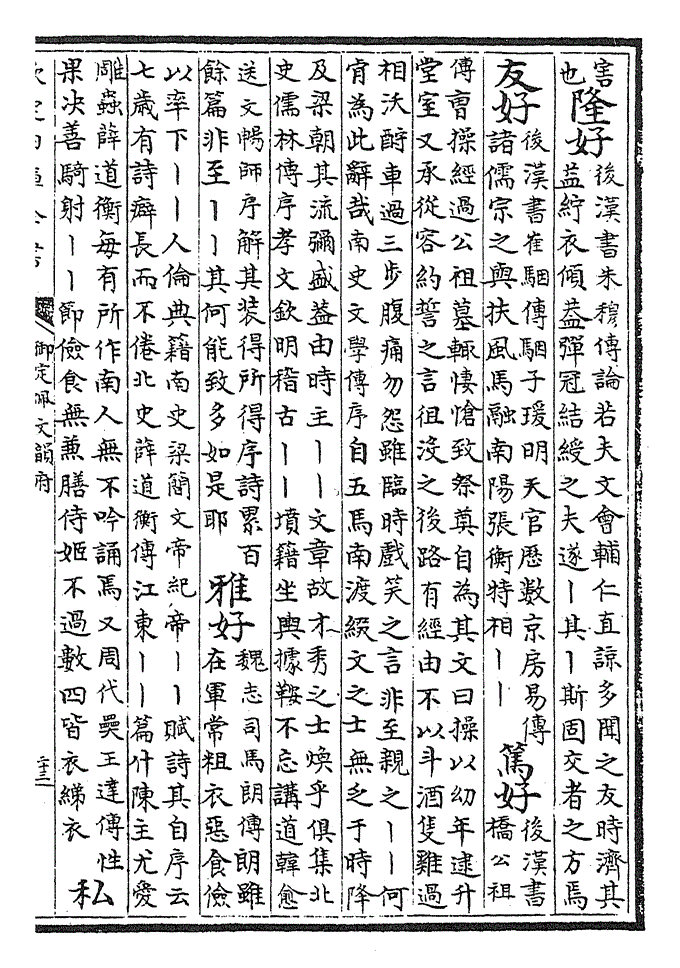 害
也
隆好
後漢書朱穆傳論若夫文會輔仁直諒多聞之友時濟其
益紵衣傾蓋彈冠結綬之夫遂丨其丨斯固交者之方焉
友好
後漢書崔駰傳駰子瑗明天官歴數京房易傳
諸儒宗之與扶風馬融南陽張衡特相丨丨
篤好
後漢書
橋公祖
傳曹操經過公祖墓輒悽愴致祭奠自為其文曰操以幼年逮升
堂室又承從容約誓之言徂沒之後路有經由不以斗酒隻雞過
相沃酹車過三步腹痛勿怨雖臨時戲笑之言非至親之丨丨何
肯為此辭哉南史文學傳序自五馬南渡綴文之士無乏于時降
及梁朝其流彌盛蓋由時主丨丨文章故才秀之士煥乎俱集北
史儒林傳序孝文欽明稽古丨丨墳籍坐輿據鞍不忘講道韓愈
送文暢師序解其装得所得序詩累百
餘篇非至丨丨其何能致多如是耶
雅好
魏志司馬朗傳朗雖
在軍常粗衣惡食儉
以率下丨丨人倫典籍南史梁簡文帝紀帝丨丨賦詩其自序云
七歳有詩癖長而不倦北史薛道衡傳江東丨丨篇什陳主尤愛
雕蟲薛道衡每有所作南人無不吟誦焉又周代奰王達傳性
果决善騎射丨丨節儉食無兼膳侍姬不過數四皆衣綈衣
私
欽定四庫全書
御定佩文韻府